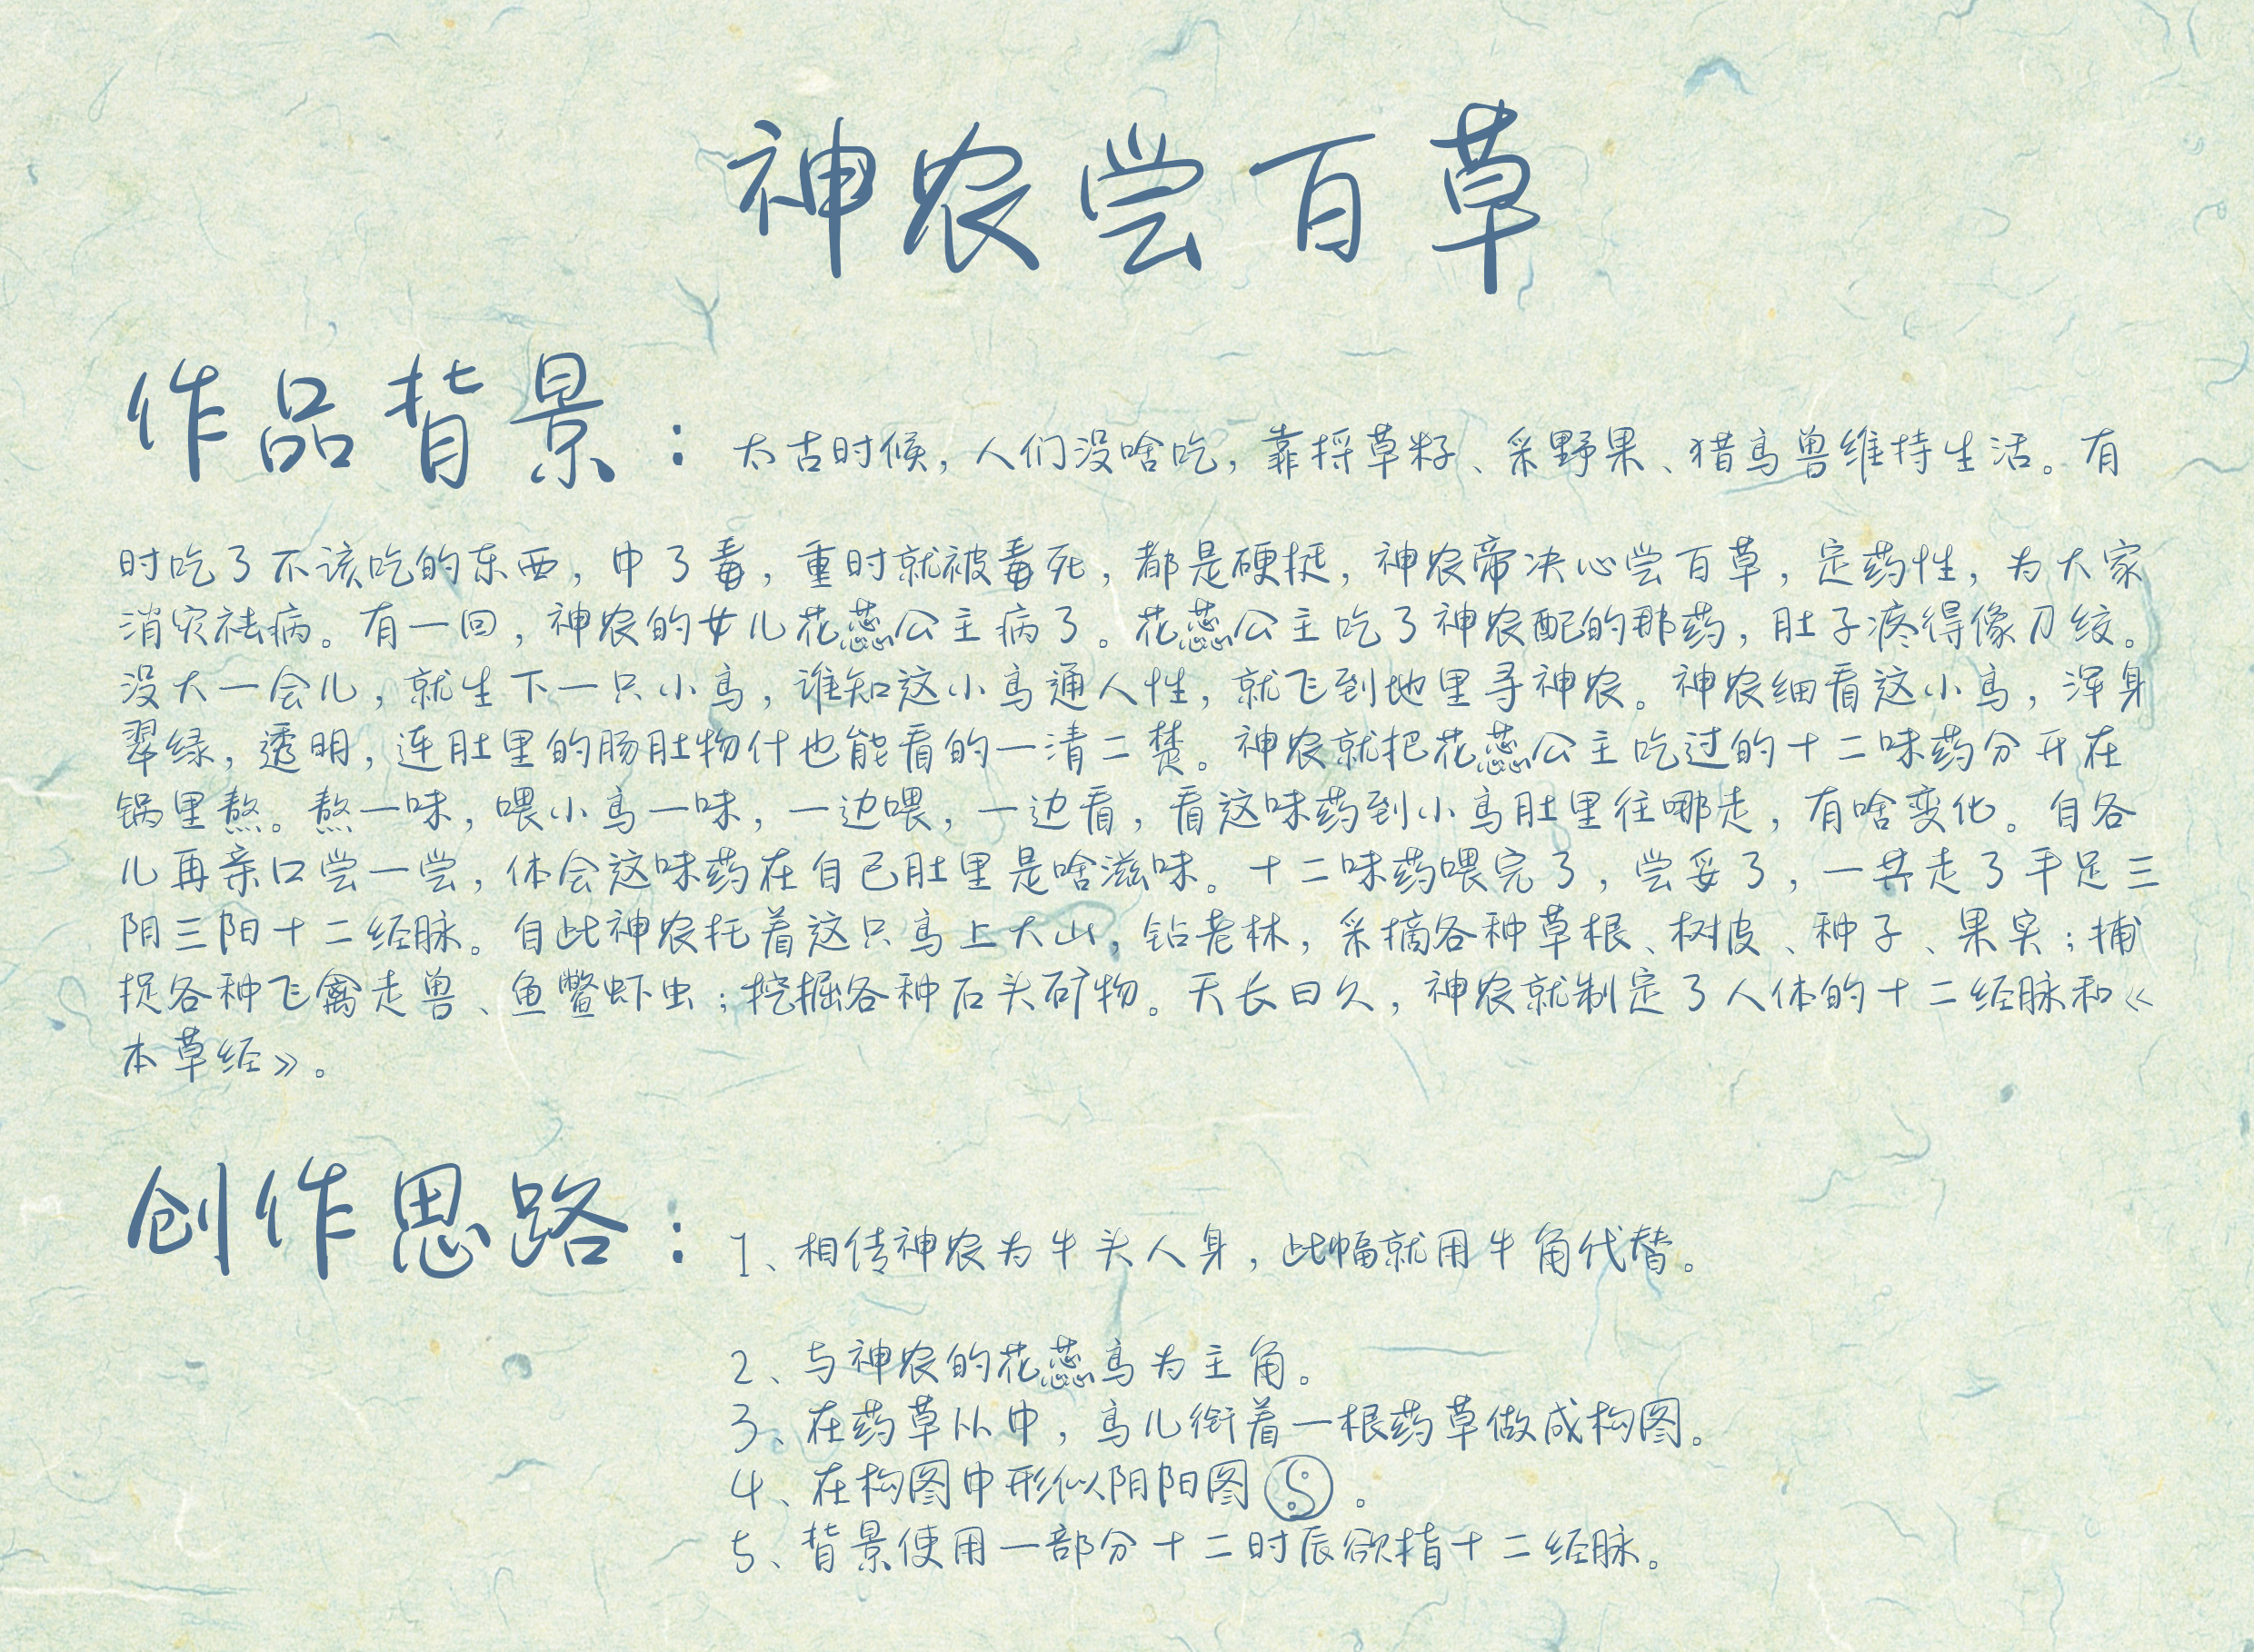 神农尝百草
作品背景：太古时候，人们没啥吃，靠捋草籽、采野果、猎鸟兽维持生活。有
时吃了不该吃的东西，中了毒，重时就被毒死，都是硬挺，神农帝决心尝百草，定药性，为大家
消灾祛病。有一回，神农的女儿花蕊公主病了。花蕊公主吃了神农配的那药，肚子疼得像刀绞。
没大一会儿，就生下一只小鸟，谁知这小鸟通人性，就飞到地里寻神农。神农细看这小鸟，浑身
翠绿，透明，连肚里的肠肚物什也能看的一清二楚。神农就把花蕊公主吃过的十二味药分开在
锅里熬。熬一味，喂小鸟一味，一边喂，一边看，看这味药到小鸟肚里往哪走，有啥变化。自各
儿再亲口尝一尝，体会这味药在自己肚里是啥滋味。十二味药喂完了，尝妥了，一共走了手足三
阴三阳十二经脉。自此神农托着这只鸟上大山，钻老林，采摘各种草根、树皮、种子、果实；捕
捉各种飞禽走兽、鱼鳖虾虫；挖掘各种石头矿物。天长日久，神农就制定了人体的十二经脉和《
本草经》。
创作思路：1、相传神农为牛头人身，此幅就用牛角代替。
2、与神农的花蕊鸟为主角。
3、在药草从中，鸟儿衔着一根药草做成构图。
4、在构图中形似阴阳图。
5、背景使用一部分十二时辰欲指十二经脉。